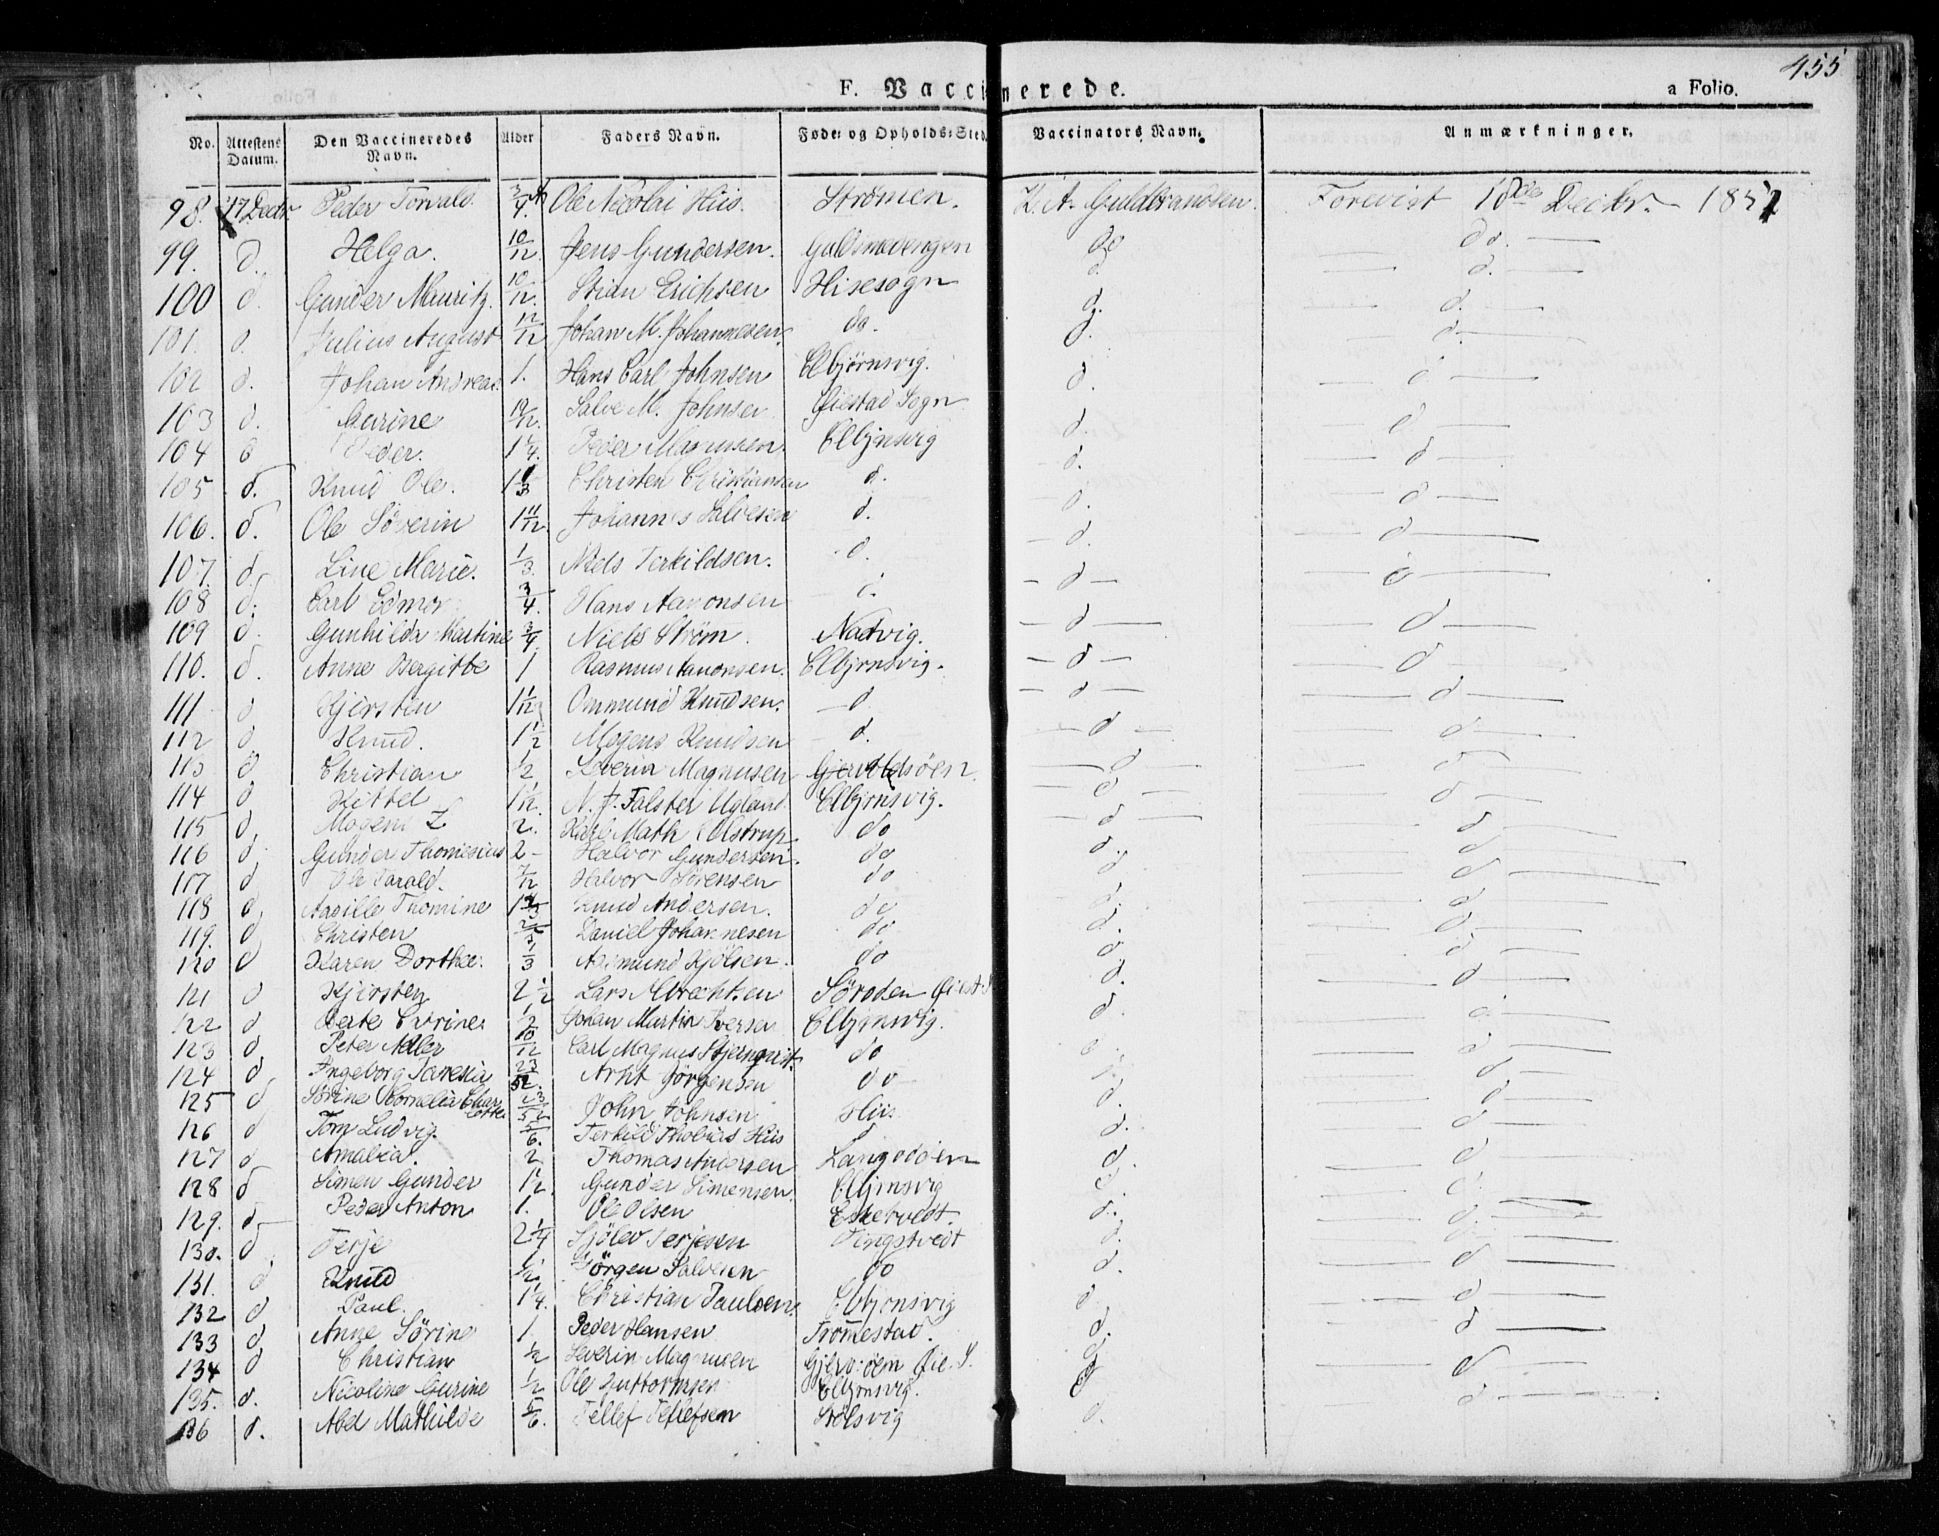 455
F. Vaccinerede.
a Folio.
No. Attestens Datum. Den Vaccineredes Navn. Alder Faders Navn. Føde- og Opholds-Sted. Vaccinators Navn. Anmærkninger.
98. 17 Decbr. Peder Torvald 3/4 Ole Nicolai Hiis. Strømen. Guldbrandsen. Forevist 18de Decbr. 1851
99. d. Helga. 10/12 Jens Gundersen. Guldsmedengen do do.
100 d. Gunder Mauritz. 10/12. Stian Erichsen Hisesogn d. d.
101. d. Julius August 12/12 Johan M. Johannesen. do. d. d.
102 d. Johan Andreas 1. Hans Carl Johnsen Elbjørnsvig. d. d
103 d. Gurine 10/12. Salve M. Johnsen Øiestad Sogn d. d
104 d Peder. 1 1/4. Peder Magnussen. Elbjnsvig d. d
105 d. Knud Ole. 1 1/3 Christen Christiansen d. d. d
106. d. Ole Söverin 1 11/12. Johannes Salvesen d. d. d
107. d. Line Marie. 1/3. Niels Terkildsen. d. d d
108 d. Carl Edmor 3/4. Hans Aaronsen d. d d
109 d. Gunhilda Martine 3/4 Niels Strøm. Nadvig. d d
110. d. Anne Bergitte 1 Rasmus Aanonsen. Elbjrnsvig. d d
111 d Kjersten 1 1/12 Ommund Knudsen. d d d
112 d. Knud. 1 1/2 Mogens Knudsen d. d d
113 d Christian 1/2 Severin Magnusen Gjervoldsøen. d d
114 d Kittel 1 1/12. N. J. Falster Ugland. Elbjrnsvig. d d
115 d. Mogens 2. Karl Math Olstrup do d. d
116 d. Gunder Thomesius 2 Halvor Gundersen. do d. d
117 d. Ole Harald. 7/12 Halvor Sörensen do d. d
118 d. Aasille Thomine Knud Andersen. do d. d.
119. d Christen Daniel Johannesen do d d
120 d Karen Dorthee. 1/3 Asmund Kjölsen. do d. d
121 d Kjersten 2 1/2 Lars Albrechtsen Øiest S d. d
122 d. Berte Cirine 1/2 Johan Martin Iversen Elbjrnsvig. d d
123 d. Peter Adler 10/12 Carl Magnus Stjernqvist. do d d
124 d. Ingeborg 23/52. Arnt Jörgensen do d. d
125 d Sörine Cornelia Charlotte 23/52 John Johnsen Hiis d. d
126 d Tom Ludvig. 5/6. Terkild Thobias Hiis Langsøen d. d
127 d Amalia 2 Thomas Andersen d. d
128 d Simen Gunder 1 1/2. Gunder Simensen. Elbjrnsvig d. d.
129. d. Peder Anton 1. Ole Olsen Eskervedt. d. d
130. d. Terje 2 1/4 Sjölev Terjesen Tingstvedt d. d
131. d Knud 1/2 Jörgen Salvesen do d d
132 d. Paul. 1 1/4. Christian Paulsen. Elbjonsvig d. d
133 d. Anne Sörine 1. Peder Hansen Tromestad. d d
134 d Christian 1/2 Severin Magnusen Gjervsöen Øie. S. d d
135. d. Nicoline Gurine 1/2 Ole Guttormsen Elbjrnsvig. d d
136 d. Abel Mathilde 5/6. Tellef Tellefsen Stølsvig d.